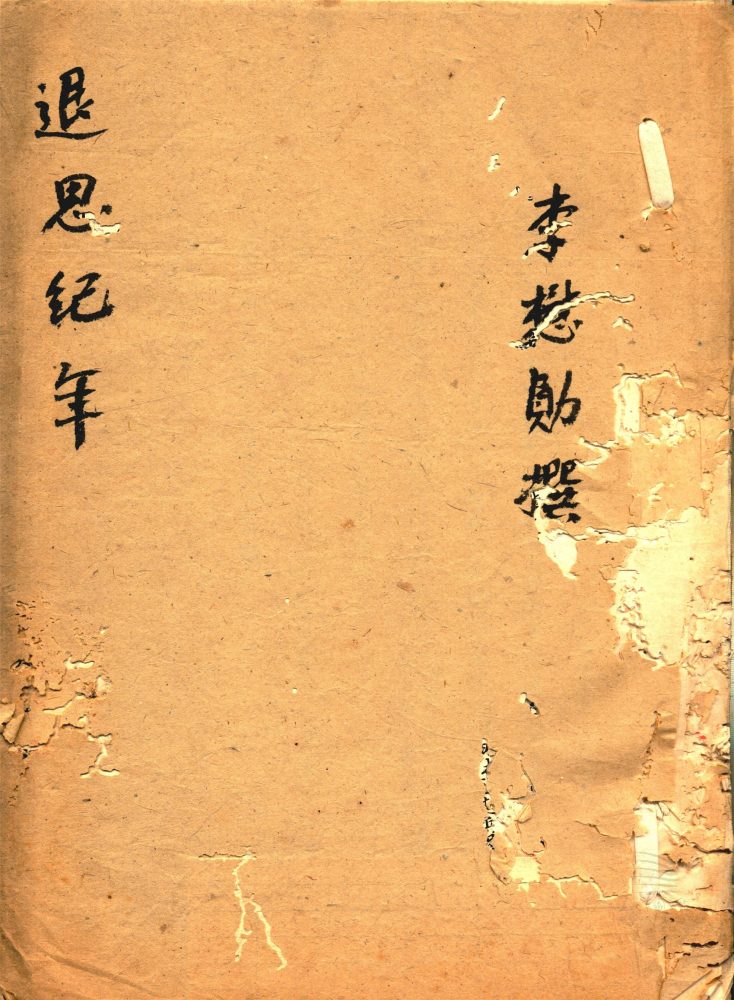 李懋勛撰
退思纪年